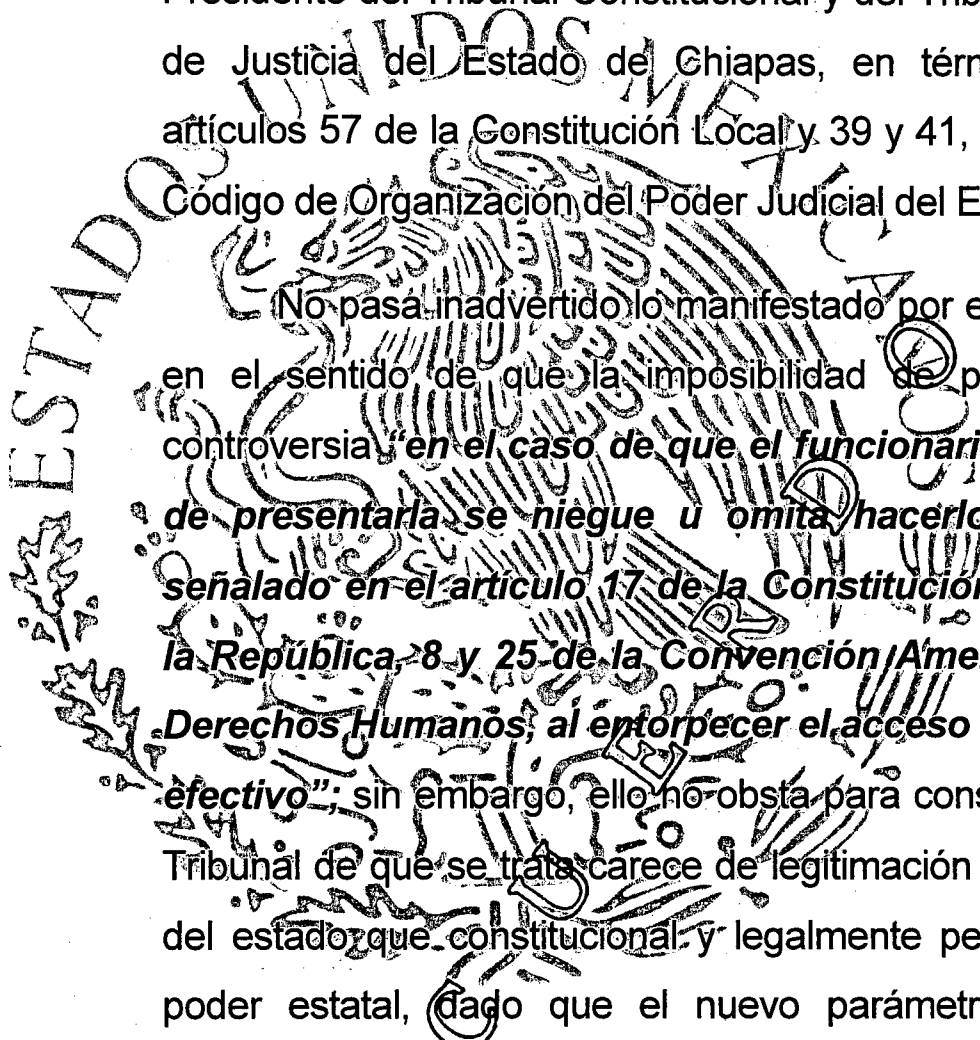 Presidente del Tribunal Constitucional y del Trib
de Justicia del Estado de Chiapas, en térr
artículos 57 de la Constitución Local y 39 y 41,
Código de Organización del Poder Judicial del E
No pasa inadvertido lo manifestado por e
en el sentido de que la imposibilidad de p
controversia "en el caso de que el funcionari
de presentarla se niegue u omita hacerlo
señalado en el artículo 17 de la Constitución
la República, 8 y 25 de la Convención Ame
Derechos Humanos, al entorpecer el acceso
efectivo"; sin embargo, ello no obsta para cons
Tribunal de que se trata carece de legitimación
del estado que constitucional y legalmente pe
poder estatal, dado que el nuevo parámetr
ESTADOS UNIDOS MEXICANOS
ACUERDO